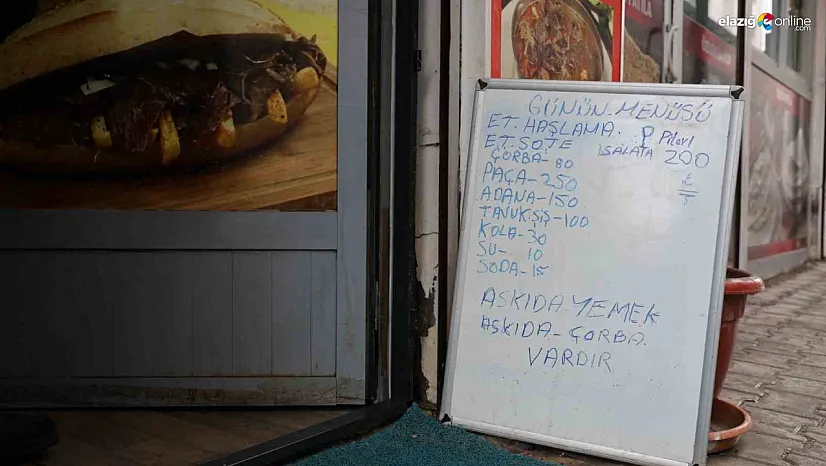 elazığ online
.com
GÜNÜN MENÜSÜ
ET. HAŞLAMA. P Pilavı
ET. SOTE SALATA 200
ÇORBA- 80
PAÇA-250
ADANA-150
TAVUK ŞİŞ-100
KOLA-30
SU- 10
SODA-15
ASKIDA-YEMEK
ASKIDA-ÇORBA.
VARDIR